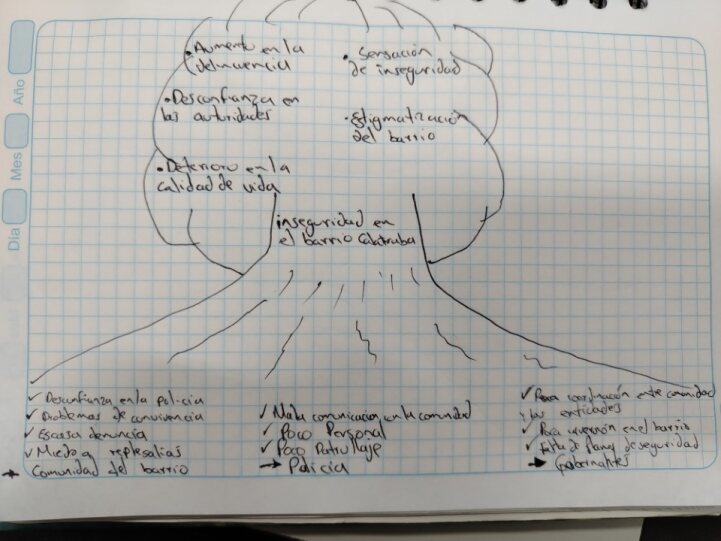 Año
Mes
Dia
• Aumento en la
delincuencia
• Desconfianza en
las autoridades
• Deterioro en la
calidad de vida
• Sensación
de inseguridad
• Estigmatización
del barrio
inseguridad en
el barrio Calatraba
✓ Desconfianza en la policia
✓ Problemas de convivencia
✓ Escasa denuncia
✓ Miedo a represalias
→ Comunidad del barrio
✓ Mala comunicacion con la comunidad
✓ Poco Personal
✓ Poco Patrullaje
→ Policia
✓ Poca coordinación entre comunidad
y las entidades
✓ Poca inversión en el barrio
✓ falta de planes de seguridad
→ Gobernantes